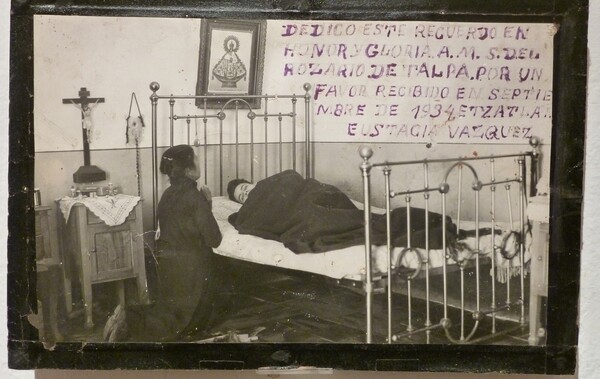 DEDICO ESTE RECUERDO EN
HONOR.Y GLORIA.A.M.S.DEL
ROZARIO.DE TALPA.POR UN
FAVOR RECIBIDO EN SEPTIE
NBRE DE 1934,ETZATLAN.
EUSTACIA VAZQUEZ